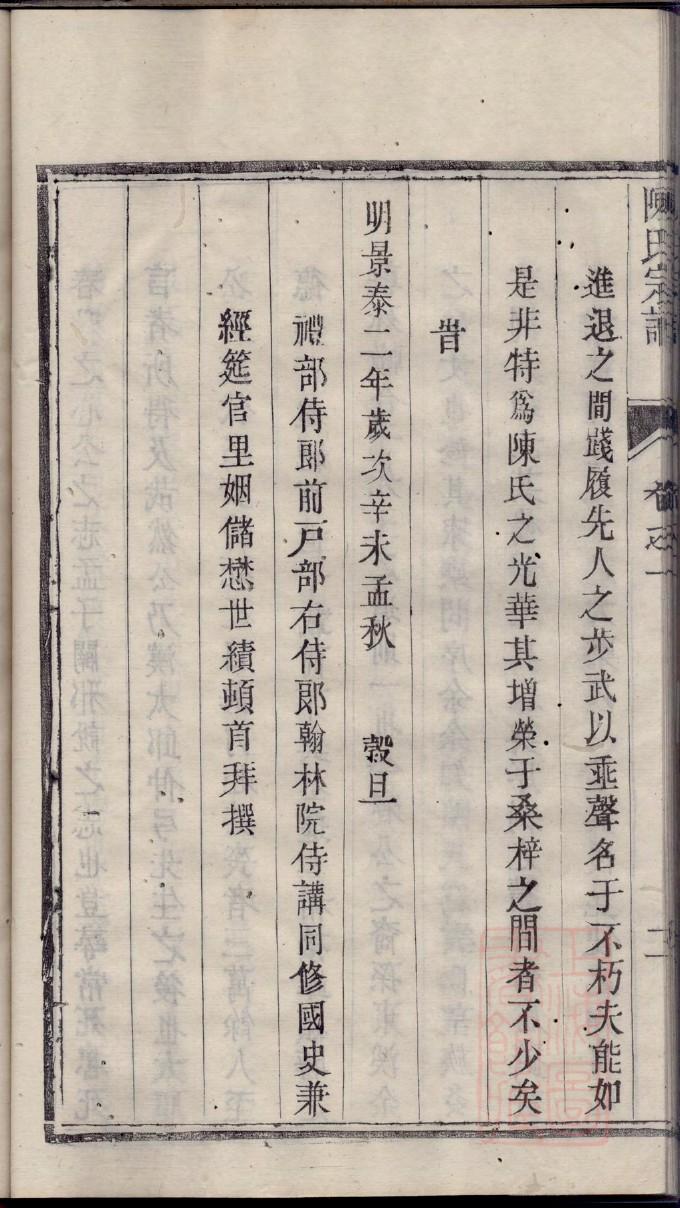 陳氏宗譜
卷之一
二
進退之間踐履先人之步武以垂聲名于不朽夫能如
是非特爲陳氏之光華其增榮于桑梓之間者不少矣
旹
明景泰二年歲次辛未孟秋 穀旦
禮部侍郎前戸部右侍郎翰林院侍講同修國史兼
經筵官里姻儲懋世績頓首拜撰